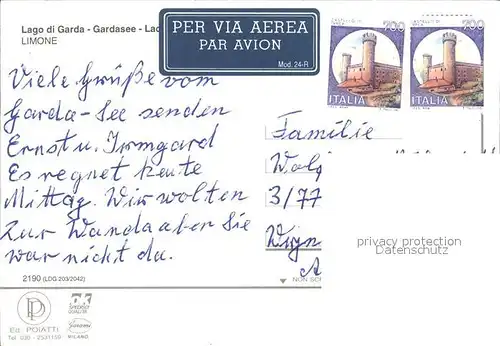 Lago di Garda - Gardasee - Lac
LIMONE
PER VIA AEREA
PAR AVION
Mod. 24-R
700
700
ITALIA
ITALIA
Viele Grüße vom
Garda-See senden
Ernst u. Irmgard
Es regnet heute
Mittag. Wir wollten
zur Wanda aber Sie
war nicht da.
Familie
3/77
privacy protection
Datenschutz
2190 (LDG 203/2042)
NON SC
Ed. POIATTI
MILANO